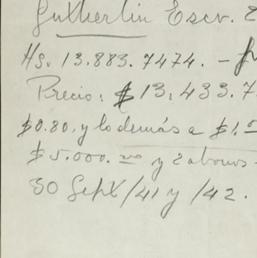 Gutherlin Escr. 2
Hs. 13.883.7474. —
Precio: $13.433.7
$0.80, y lo demás a $1.
$5.000. — y 2 abonos
30 Sept/41 y /42.